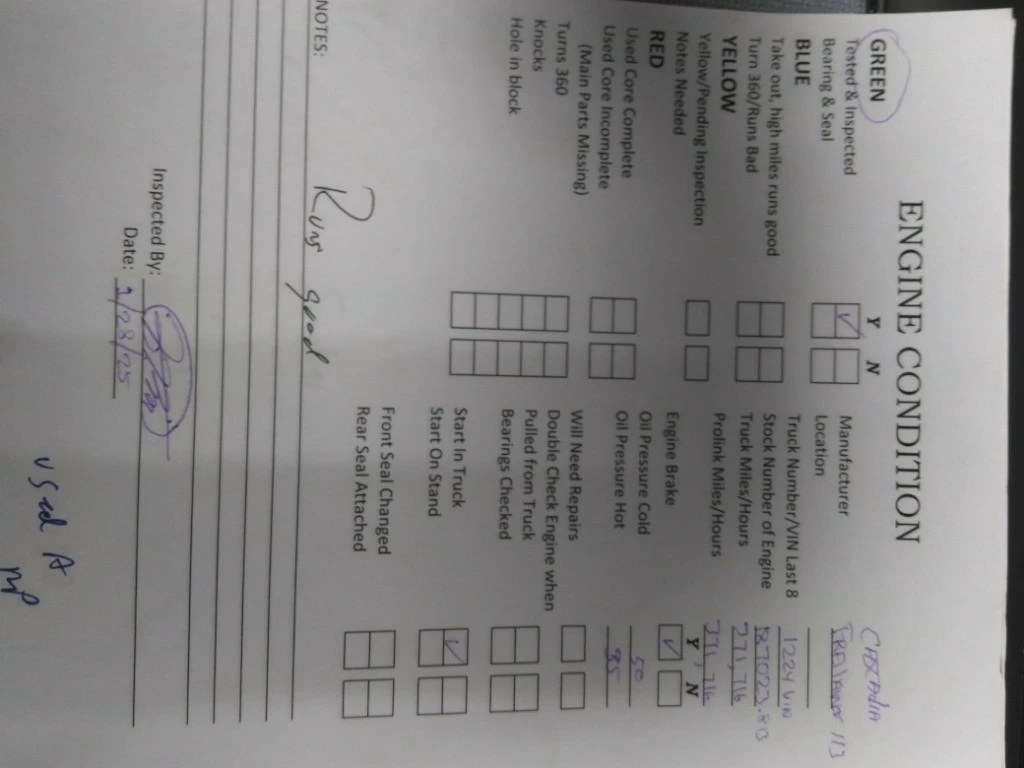 ENGINE CONDITION
Y N
GREEN
Tested & Inspected
Bearing & Seal
BLUE
Take out, high miles runs good
Turn 360/Runs Bad
YELLOW
Yellow/Pending Inspection
Notes Needed
RED
Used Core Complete
Used Core Incomplete
(Main Parts Missing)
Turns 360
Knocks
Hole in block
Manufacturer
Location
Truck Number/VIN Last 8
Stock Number of Engine 1224 VIN
Truck Miles/Hours
Prolink Miles/Hours 271,716
Y N
Engine Brake
Oil Pressure Cold 50
Oil Pressure Hot
Will Need Repairs
Double Check Engine when
Pulled from Truck
Bearings Checked
Start In Truck
Start On Stand
Front Seal Changed
Rear Seal Attached
NOTES:
Runs good
Inspected By:
Date: /28/25
used A